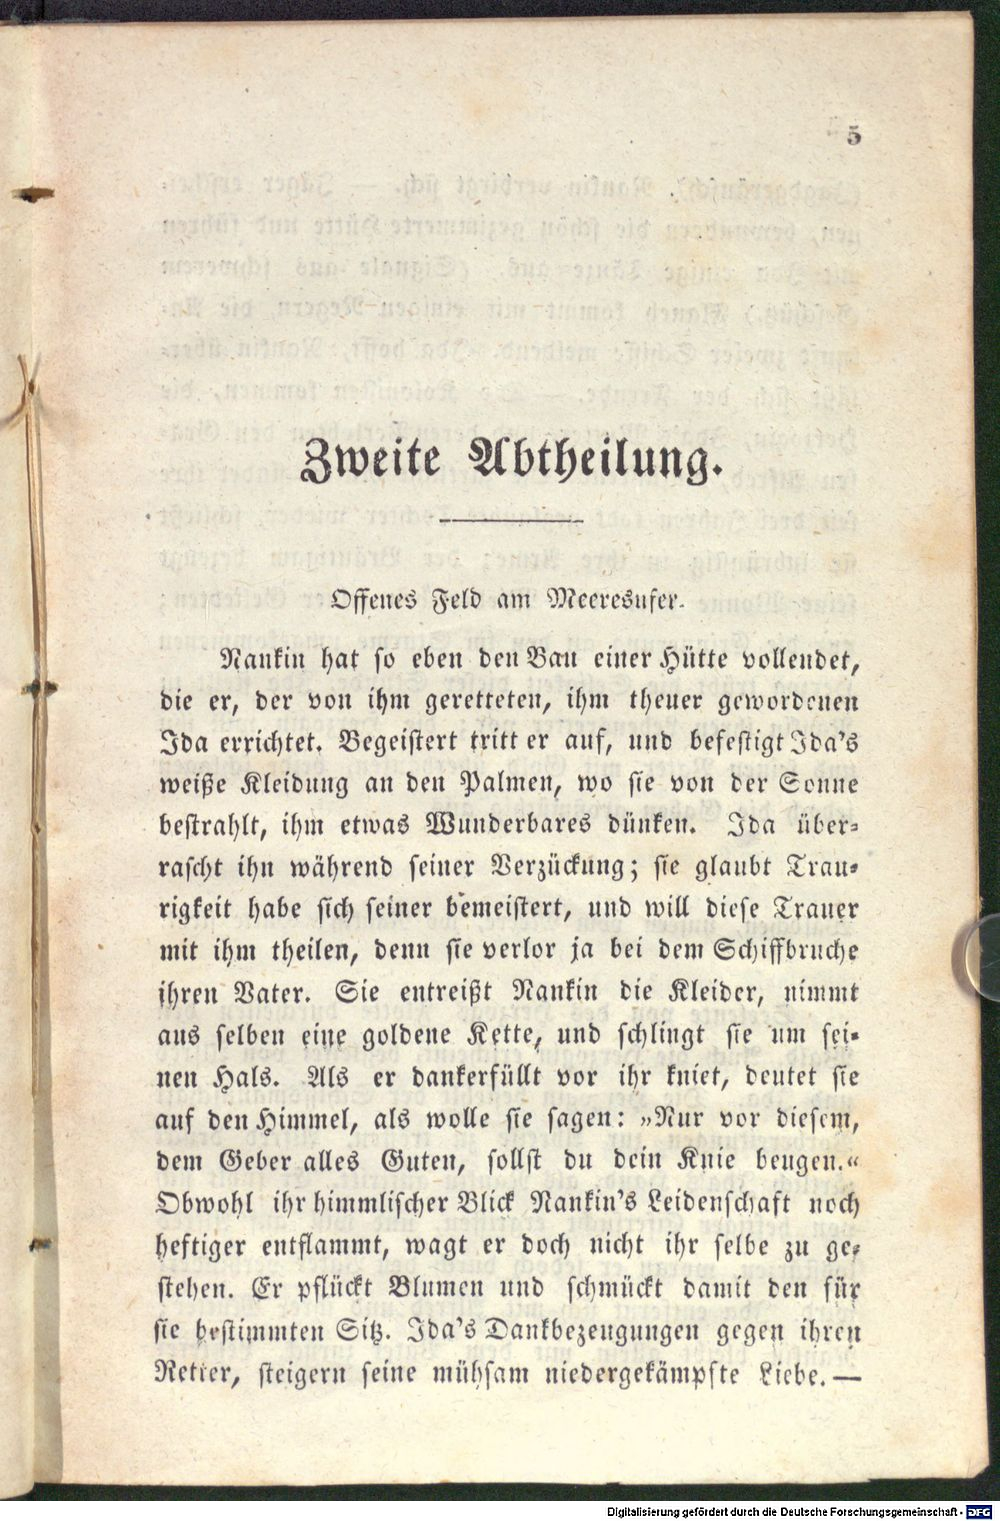 5
Zweite Abtheilung.
Offenes Feld am Meeresufer.
Nankin hat so eben den Bau einer Hütte vollendet,
die er, der von ihm geretteten, ihm theuer gewordenen
Ida errichtet. Begeistert tritt er auf, und befestigt Ida's
weiße Kleidung an den Palmen, wo sie von der Sonne
bestrahlt, ihm etwas Wunderbares dünken. Ida über-
rascht ihn während seiner Verzückung; sie glaubt Trau-
rigkeit habe sich seiner bemeistert, und will diese Trauer
mit ihm theilen, denn sie verlor ja bei dem Schiffbruche
ihren Vater. Sie entreißt Nankin die Kleider, nimmt
aus selben eine goldene Kette, und schlingt sie um sei-
nen Hals. Als er dankerfüllt vor ihr kniet, deutet sie
auf den Himmel, als wolle sie sagen: »Nur vor diesem,
dem Geber alles Guten, sollst du dein Knie beugen.“
Obwohl ihr himmlischer Blick Nankin's Leidenschaft noch
heftiger entflammt, wagt er doch nicht ihr selbe zu ge-
stehen. Er pflückt Blumen und schmückt damit den für
sie bestimmten Sitz. Ida's Dankbezeugungen gegen ihren
Retter, steigern seine mühsam niedergekämpfte Liebe. —
Digitalisierung gefördert durch die Deutsche Forschungsgemeinschaft - DFG